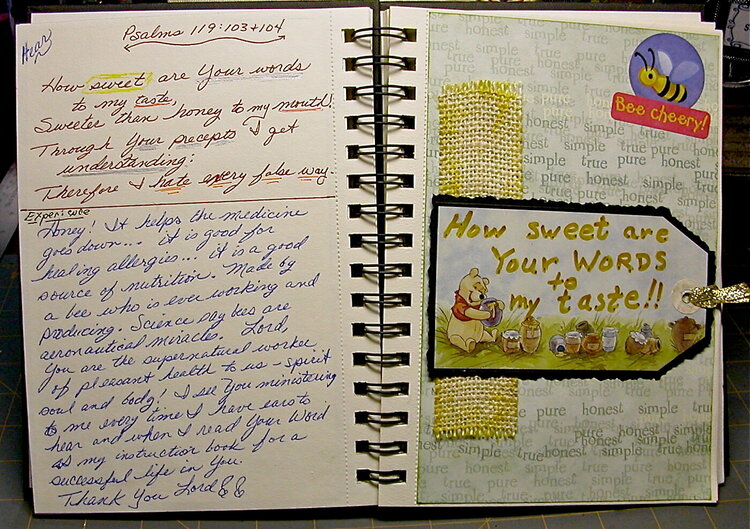 Hear
Psalms 119:103+104
How sweet are Your words
to my taste,
Sweeter than honey to my mouth!
Through Your precepts I get
understanding:
Therefore I hate every false way.
Experience
Honey! It helps the medicine
goes down... it is good for
healing allergies... it is a good
source of nutrition. Made by
a bee who is ever working and
producing. Science say bees are
aeronautical miracles. Lord
You are the supernatural worker
of pleasant health to us - spirit
soul and body! I see You ministering
to me every time I have ears to
hear and when I read Your Word
as my instruction book for a
successful life in You.
Thank You Lord
Bee cheery!
How sweet are
Your WORDS
to
my taste!!
simple true pure honest
true pure honest simple
pure honest simple true
honest simple true pure